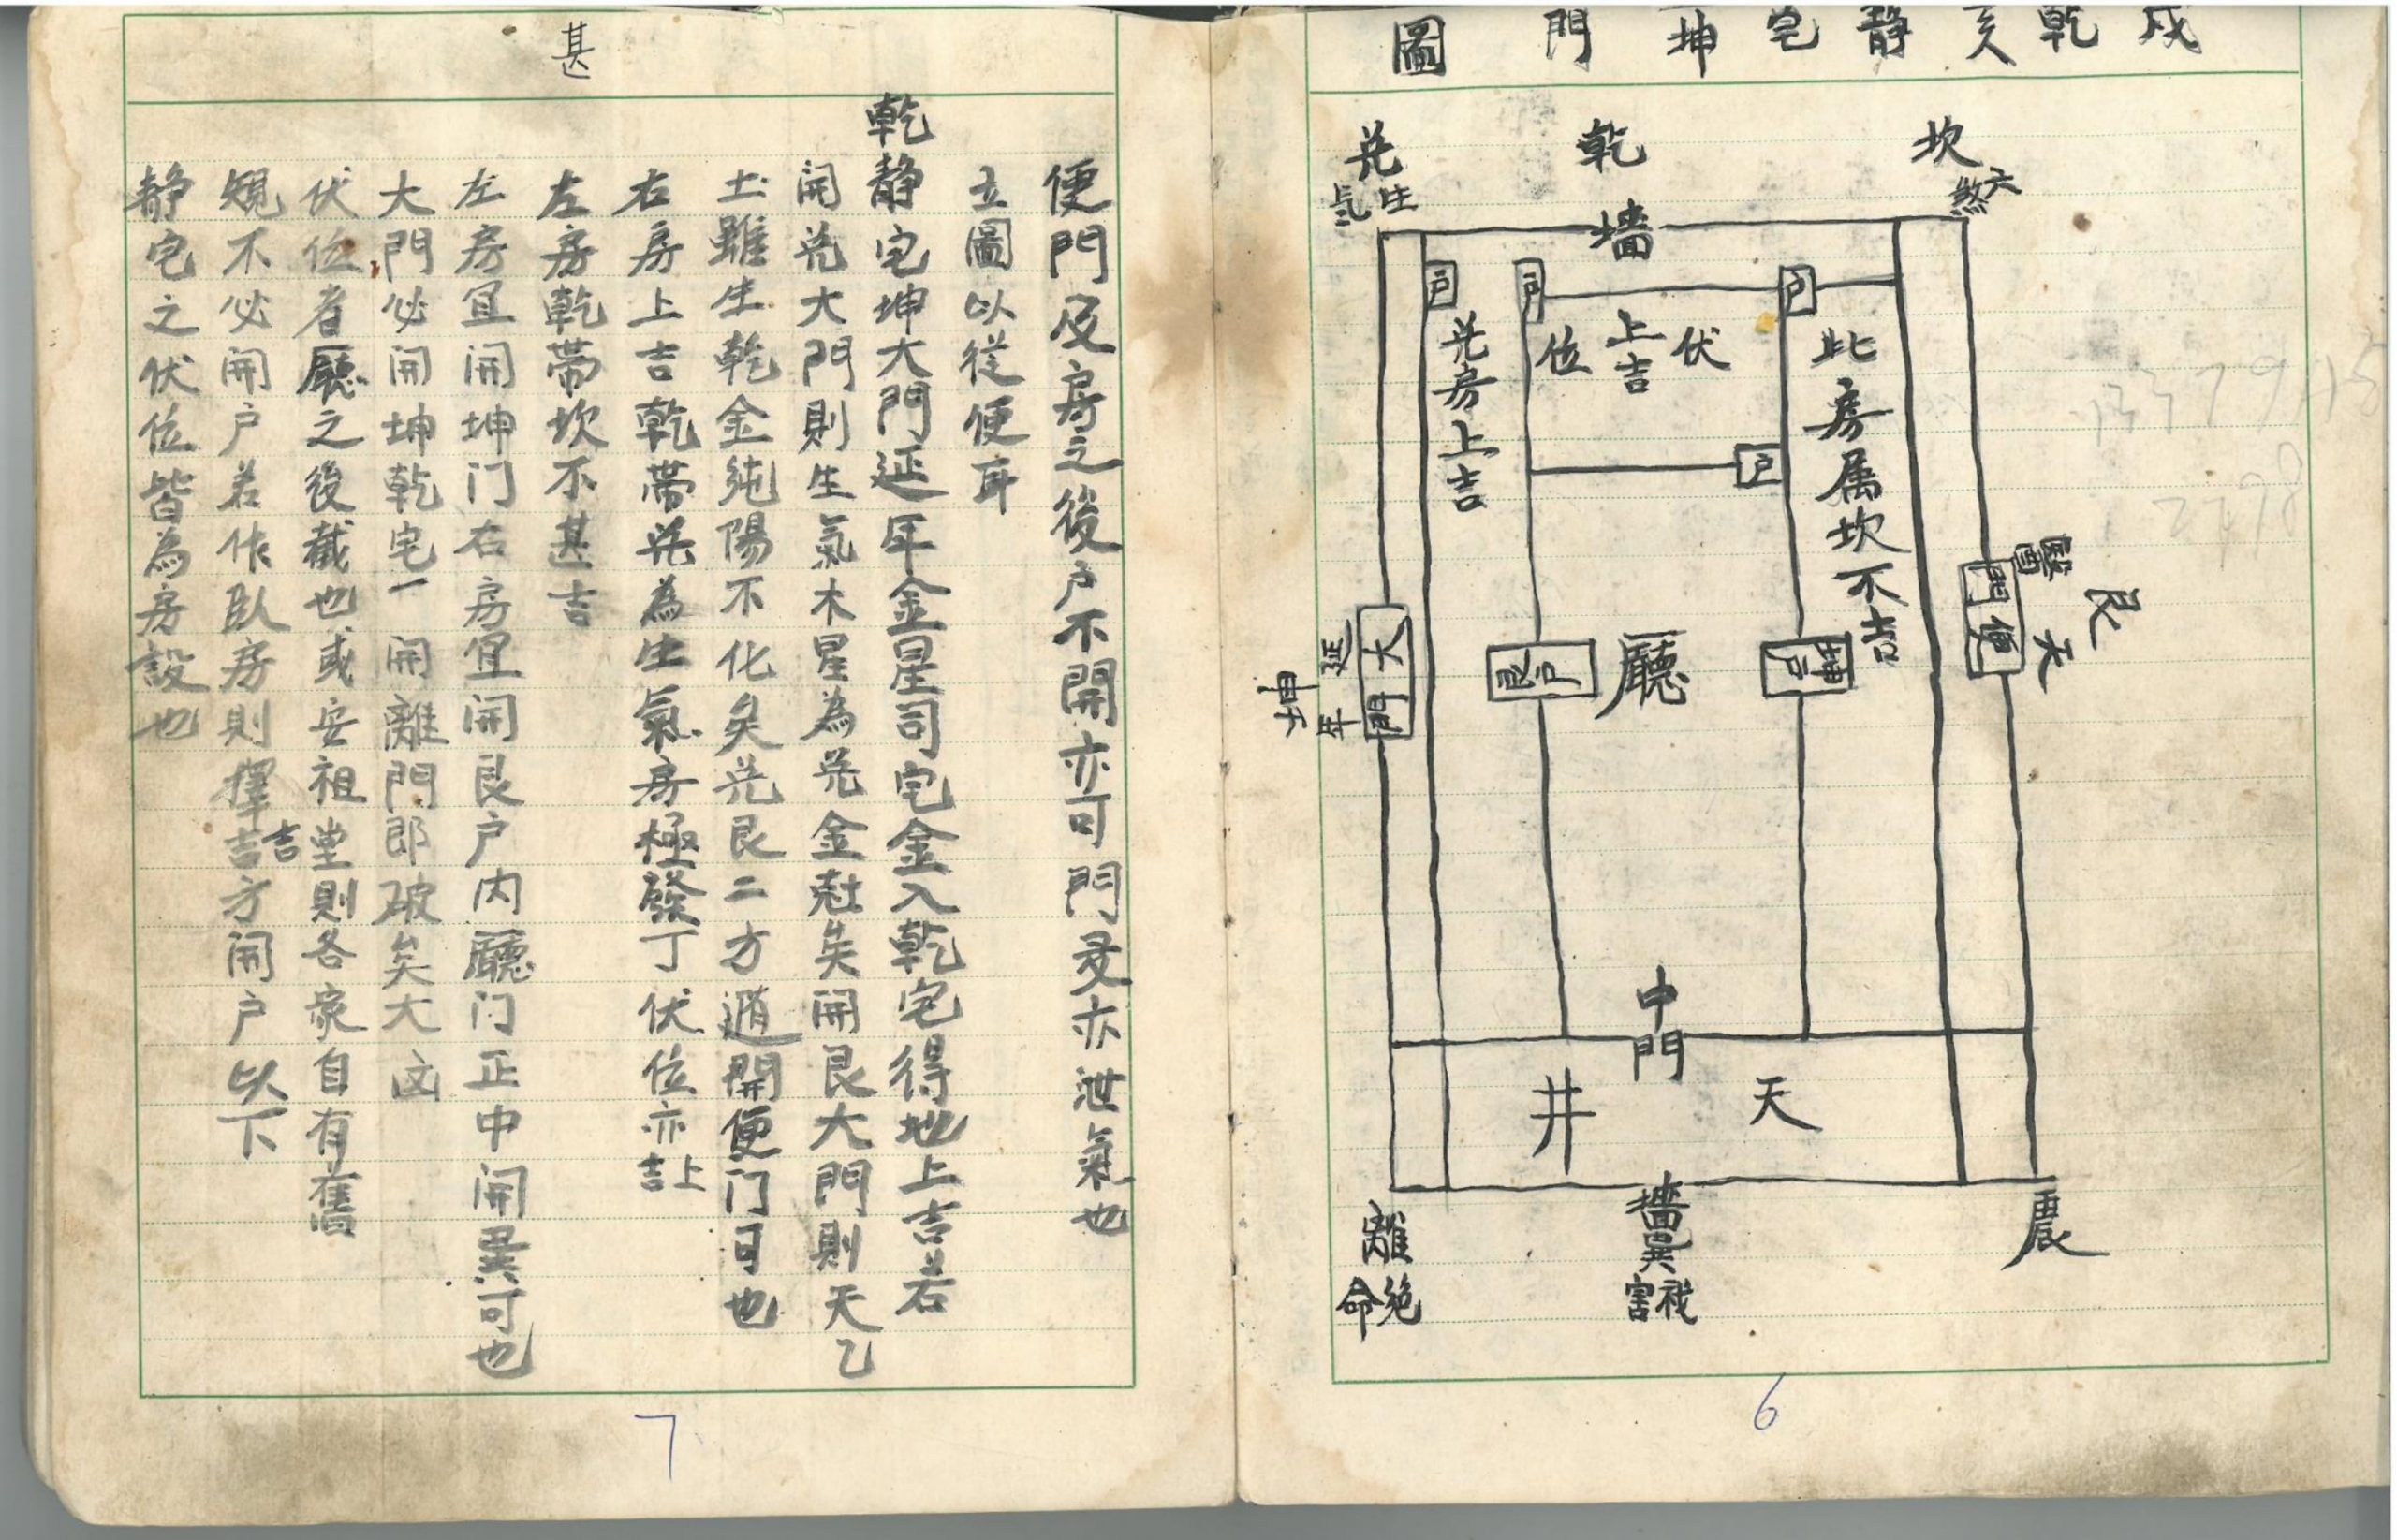 戍乾亥靜宅坤門圖
坎
六煞
乾
兌
生氣
墻
戶
戶
戶
伏位
上吉
兌房上吉
此房属坎不吉
戶
大門
延年
坤
艮戶
廳
坤戶
便門
艮
天醫
中門
天井
墻
巽
禍害
離
絕命
震
6
便門及房之後户不開亦可門多亦泄氣也
立圖以從便耳
乾静宅坤大門延年金星司宅金入乾宅得地上吉若
開兌大門則生氣木星為兌金尅矣開艮大門則天乙
土雖生乾金純陽不化矣兌艮二方遁開便门可也
右房上吉乾帶兌為生氣房極發丁伏位亦上吉
左房乾帶坎不甚吉
左房宜開坤门右房宜開艮户内廳门正中開巽可也
大門必開坤乾宅一開離門即破矣大凶
伏位者廳之後截也或安祖堂則各家自有舊
規不必開户若作臥房則擇吉方開户以下
吉
静宅之伏位皆為房設也
甚
7